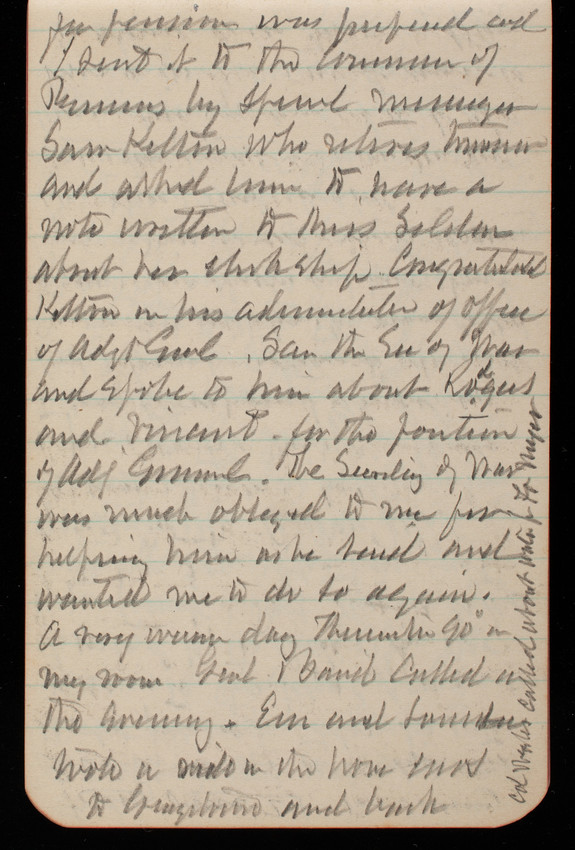 for pension was prepared and
I sent it to the Commr of
Pensions by Special Messenger
Saw Kelton who retires tomorrow
and asked him to have a
note written to Miss
about her clerkship. Congratulated
Kelton on his administration of office
of Adjt Genl. Saw the Sec of War
and spoke to him about
and Vincent for the position
of Adj General. The Secretary of War
was much obliged to me for
helping him as he said and
wanted me to do so again.
A very warm day Thermometer 90° in
my room. Genl Baird called in
the evening. Em and
took a ride on the horse cars
to Georgetown and back
Col called about to